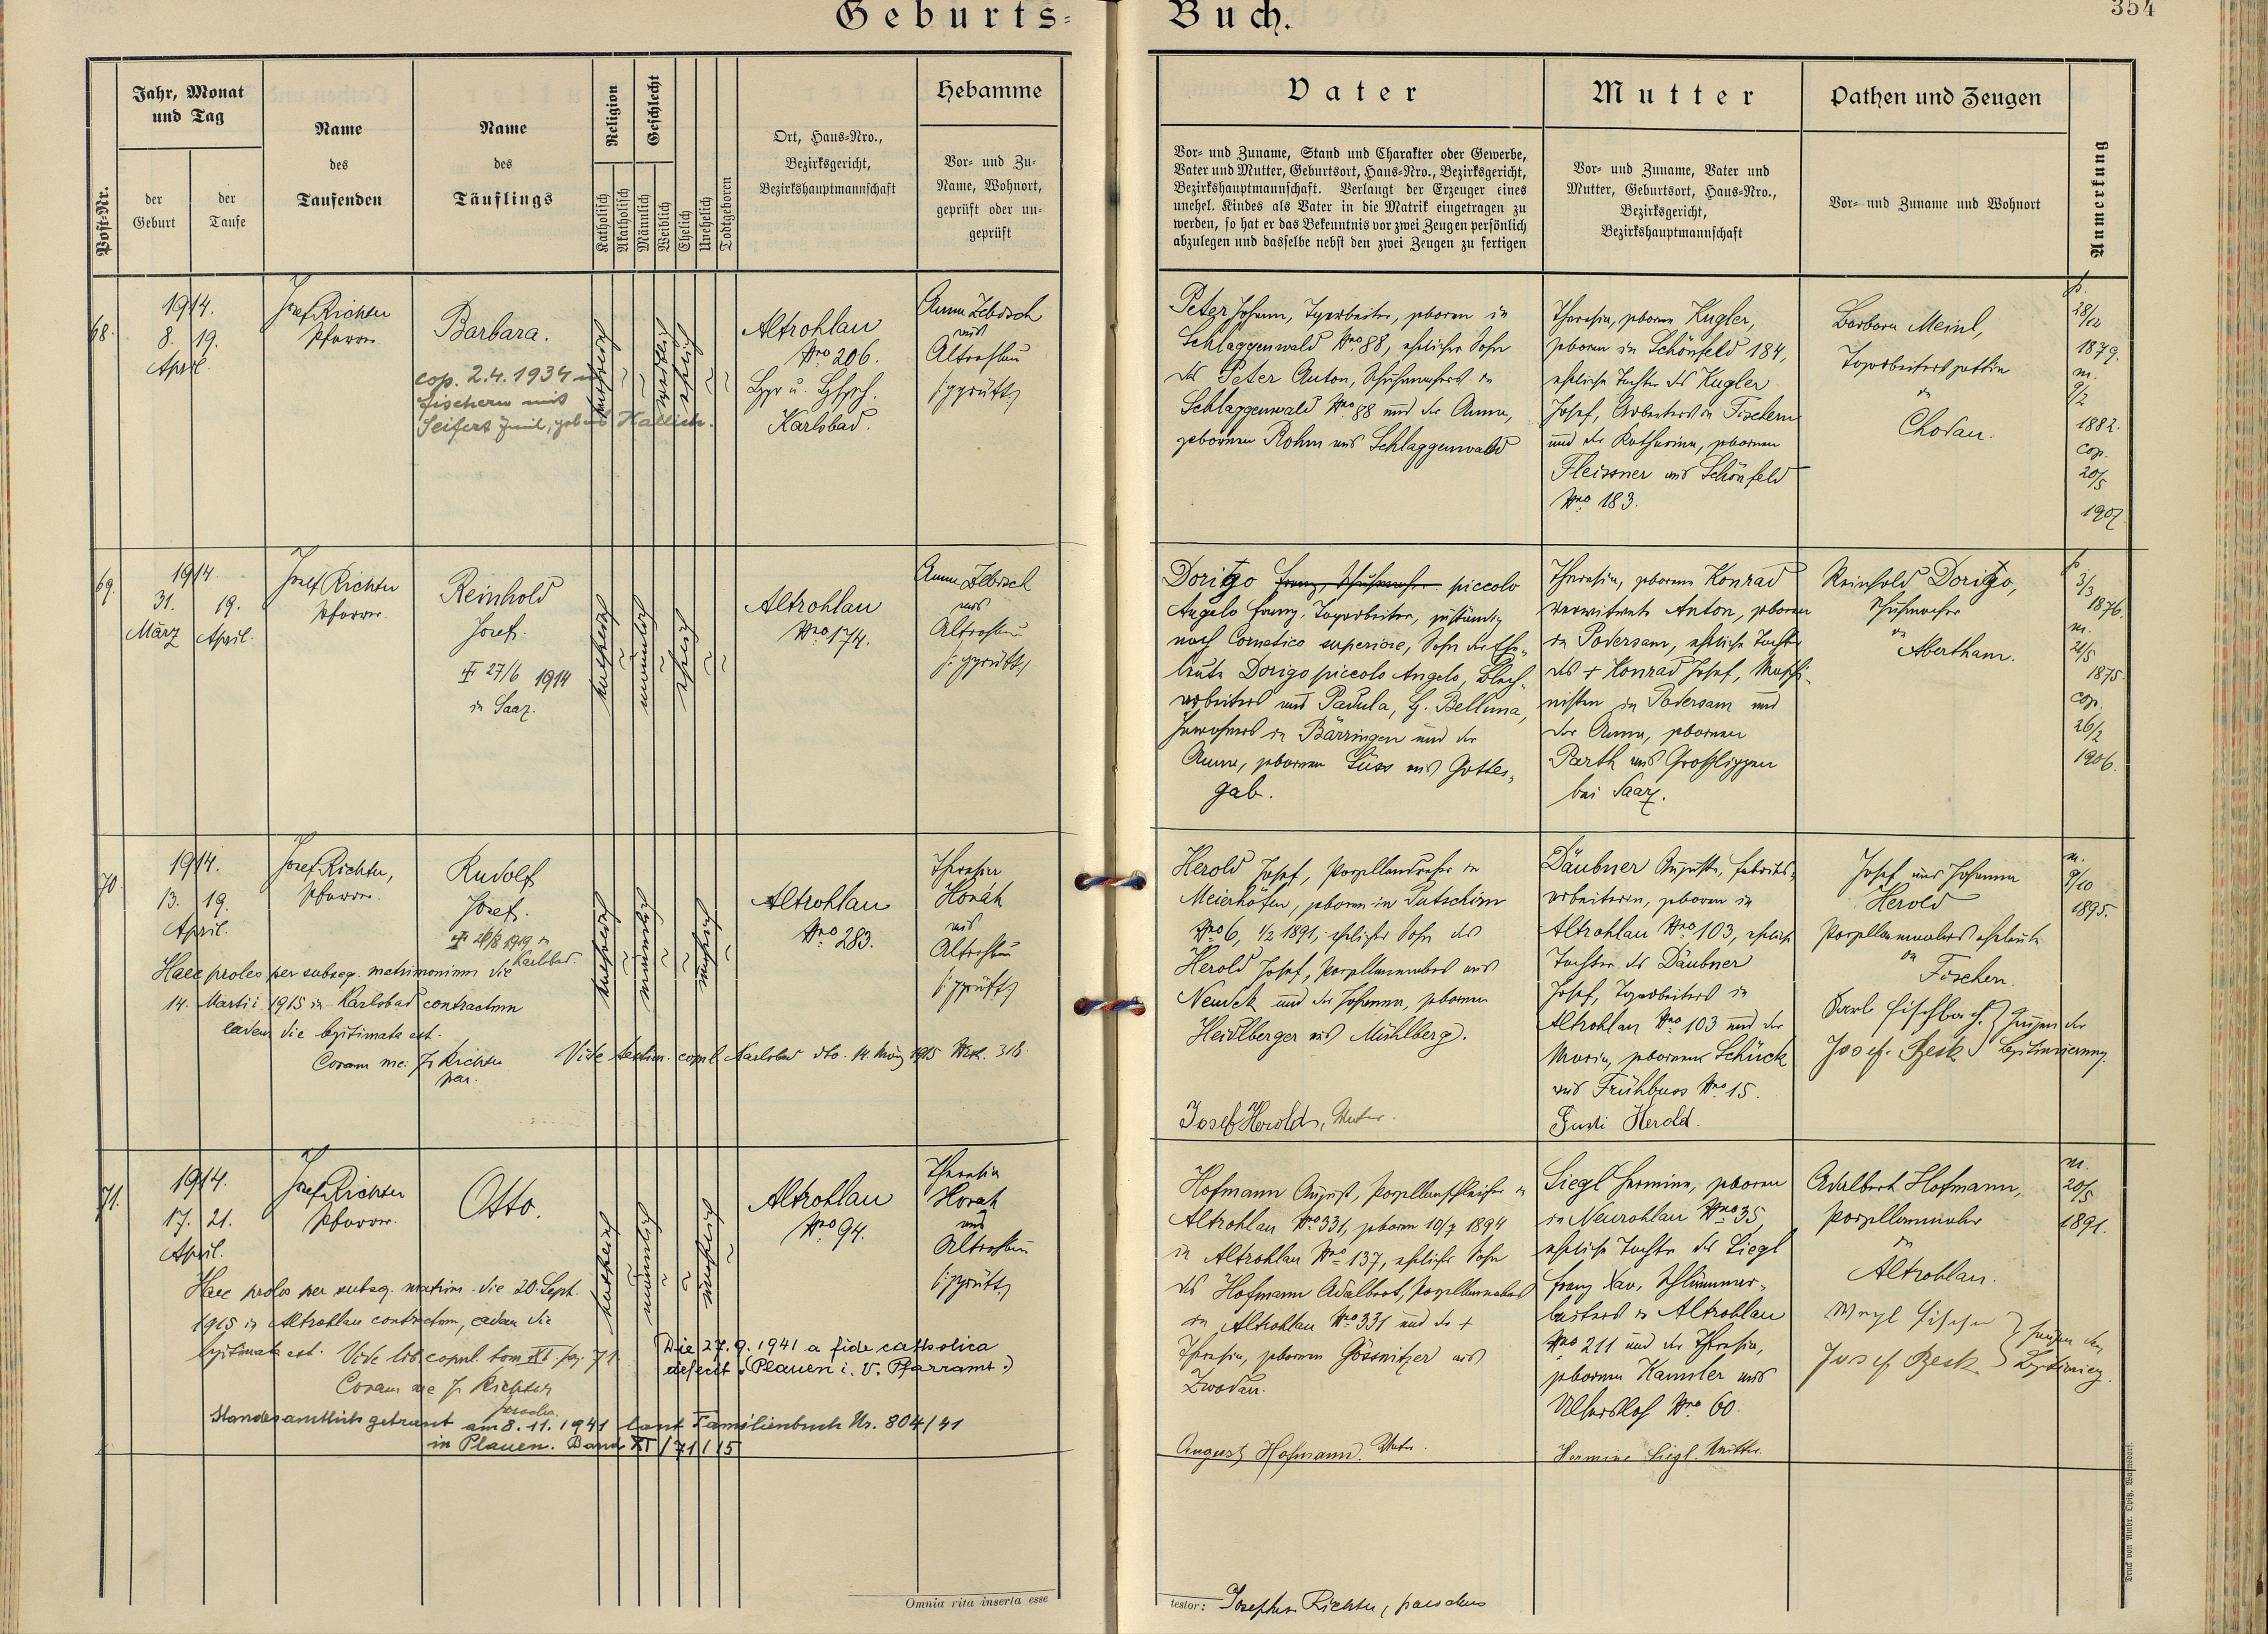 Geburts-Buch.
354
Post-Nr.
Jahr, Monat
und Tag
der
Geburt
der
Taufe
Name
des
Taufenden
Name
des
Täuflings
Religion
Katholisch
Akatholisch
Geschlecht
Männlich
Weiblich
Ehelich
Unehelich
Todtgeboren
Ort, Haus-Nro.,
Bezirksgericht,
Bezirkshauptmannschaft
Hebamme
Vor- und Zu-
Name, Wohnort,
geprüft oder un-
geprüft
Vater
Vor- und Zuname, Stand und Charakter oder Gewerbe,
Vater und Mutter, Geburtsort, Haus-Nro., Bezirksgericht,
Bezirkshauptmannschaft. Verlangt der Erzeuger eines
unehel. Kindes als Vater in die Matrik eingetragen zu
werden, so hat er das Bekenntnis vor zwei Zeugen persönlich
abzulegen und dasselbe nebst den zwei Zeugen zu fertigen
Mutter
Vor- und Zuname, Vater und
Mutter, Geburtsort, Haus-Nro.,
Bezirksgericht,
Bezirkshauptmannschaft
Pathen und Zeugen
Vor- und Zuname und Wohnort
Anmerkung
68.
1914.
8. 19.
April.
Josef Richter
Pfarrer
Barbara.
cop. 2.4.1934 in
Fischern mit
Seifert Emil,
katholisch
weiblich
ehelich
Altrohlau
Nro 206.
Karlsbad.
Anna
aus
Altrohlau
(: geprüft :)
Peter Johann, Tagarbeiter, geboren in
Schlaggenwald Nro 88, ehelicher Sohn
des Peter Anton, Schuhmachers in
Schlaggenwald Nro 88 und der Anna,
geborenen Rohm aus Schlaggenwald
Theresia, geborene Kugler,
geboren in Schönfeld 184,
eheliche Tochter des Kugler
Josef, Arbeiters in Fischern
und der Katharina, geborenen
Fleissner aus Schönfeld
Nro 183.
Barbara Meinl,
Tagarbeitersgattin
in
Chodau.
28/12
1879.
m.
9/2
1882.
cop.
20/5
1907
69.
1914
31. 19.
März April.
Josef Richter
Pfarrer
Reinhold
Josef.
27/6 1914
in Saaz.
katholisch
männlich
ehelich
Altrohlau
Nro 174.
Anna
aus
Altrohlau
(: geprüft :)
Dorigo Franz, Schuhmacher piccolo
Angelo Franz, Tagarbeiter, zuständig
nach Comelico superiore, Sohn der Ehe-
leute Dorigo piccolo Angelo, Blech-
arbeiters aus Padula, G. Belluna,
Inwohners in Bärringen und der
Anna, geborenen Süss aus Gottes-
gab.
Theresia, geborene Konrad
verwitwete Anton, geboren
in Podersam, eheliche Tochter
des + Konrad Josef, Maschi-
nisten in Podersam und
der Anna, geborenen
Parth aus Grosslippen
bei Saaz.
Reinhold Dorigo,
Schuhmacher
in
Abertham.
3/3
1876.
m.
21/5
1875
cop.
26/2
1906.
70.
1914.
13. 19.
April.
Josef Richter,
Pfarrer.
Rudolf
Josef.
1919 in
Karlsbad.
Haec proles per subseq. matrimonium die
14. Martii 1915 in Karlsbad contractum
eadem die legitimata est.
Coram me: J. Richter
par.
katholisch
männlich
unehelich
Altrohlau
Nro 283.
Theresia
Horák
aus
Altrohlau
(: geprüft :)
Karlsbad dto. 14. März 1915 318.
Herold Josef, Porzellandreher in
Meierhöfen, geboren in Putschirn
Nro 6, 1/2 1891, ehelicher Sohn des
Herold Josef, Porzellanmalers aus
Neudek und der Johanna, geborenen
Heidlberger aus Mühlberg.
Josef Herold, Vater.
Däubner Auguste, Fabriks-
arbeiterin, geboren in
Altrohlau Nro 103, eheliche
Tochter des Däubner
Josef, Tagarbeiters in
Altrohlau Nro 103 und der
Maria, geborenen Schück
aus Frühbuss Nro 15.
Gusti Herold.
Josef und Johanna
Herold
Porzellanmalerseheleute
in
Fischern.
Karl Fischbach } Zeugen der
Josef Besk } Legitimierung.
m.
9/10
1895.
71.
1914.
17. 21.
April.
Josef Richter
Pfarrer.
Otto.
Haec proles per subseq. matrim. die 20. Sept.
1915 in Altrohlau contractum, eadem die
legitimata est. Vide lib. copul. tom XI. pag. 71
Coram me J. Richter
parochus
Die 27.9.1941 a fide catholica
defecit (Plauen i. V. Pfarramt.)
Standesamtlich getraut am 8.11.1941 laut Familienbuch Nr. 804/41
in Plauen. Band XI/71/15
katholisch
männlich
unehelich
Altrohlau
Nro 94.
Theresia
Horak
aus
Altrohlau
(: geprüft :)
Hofmann August, Porzellanschleifer in
Altrohlau Nro 331, geboren 10/7 1894
in Altrohlau Nro 137, ehelicher Sohn
des Hofmann Adalbert, Porzellanmalers
in Altrohlau Nro 331 und der +
Theresia, geborenen Gössnitzer aus
Zwodau.
August Hofmann. Vater.
Siegl Hermine, geboren
in Neurohlau Nro 35,
eheliche Tochter des Siegl
Franz Xav.
in Altrohlau
Nro 211 und der Theresia,
geborenen Hamsler aus
Nro 60.
Hermine Siegl. Mutter.
Adalbert Hofmann,
Porzellanmaler
in
Altrohlau.
Fischer } Zeugen der
Josef Besk } Legitimierg.
m.
20/5
1891.
Omnia rita inserta esse
testor: Josephus Richter, parochus
Druck von Ambr. Opitz, Warnsdorf.